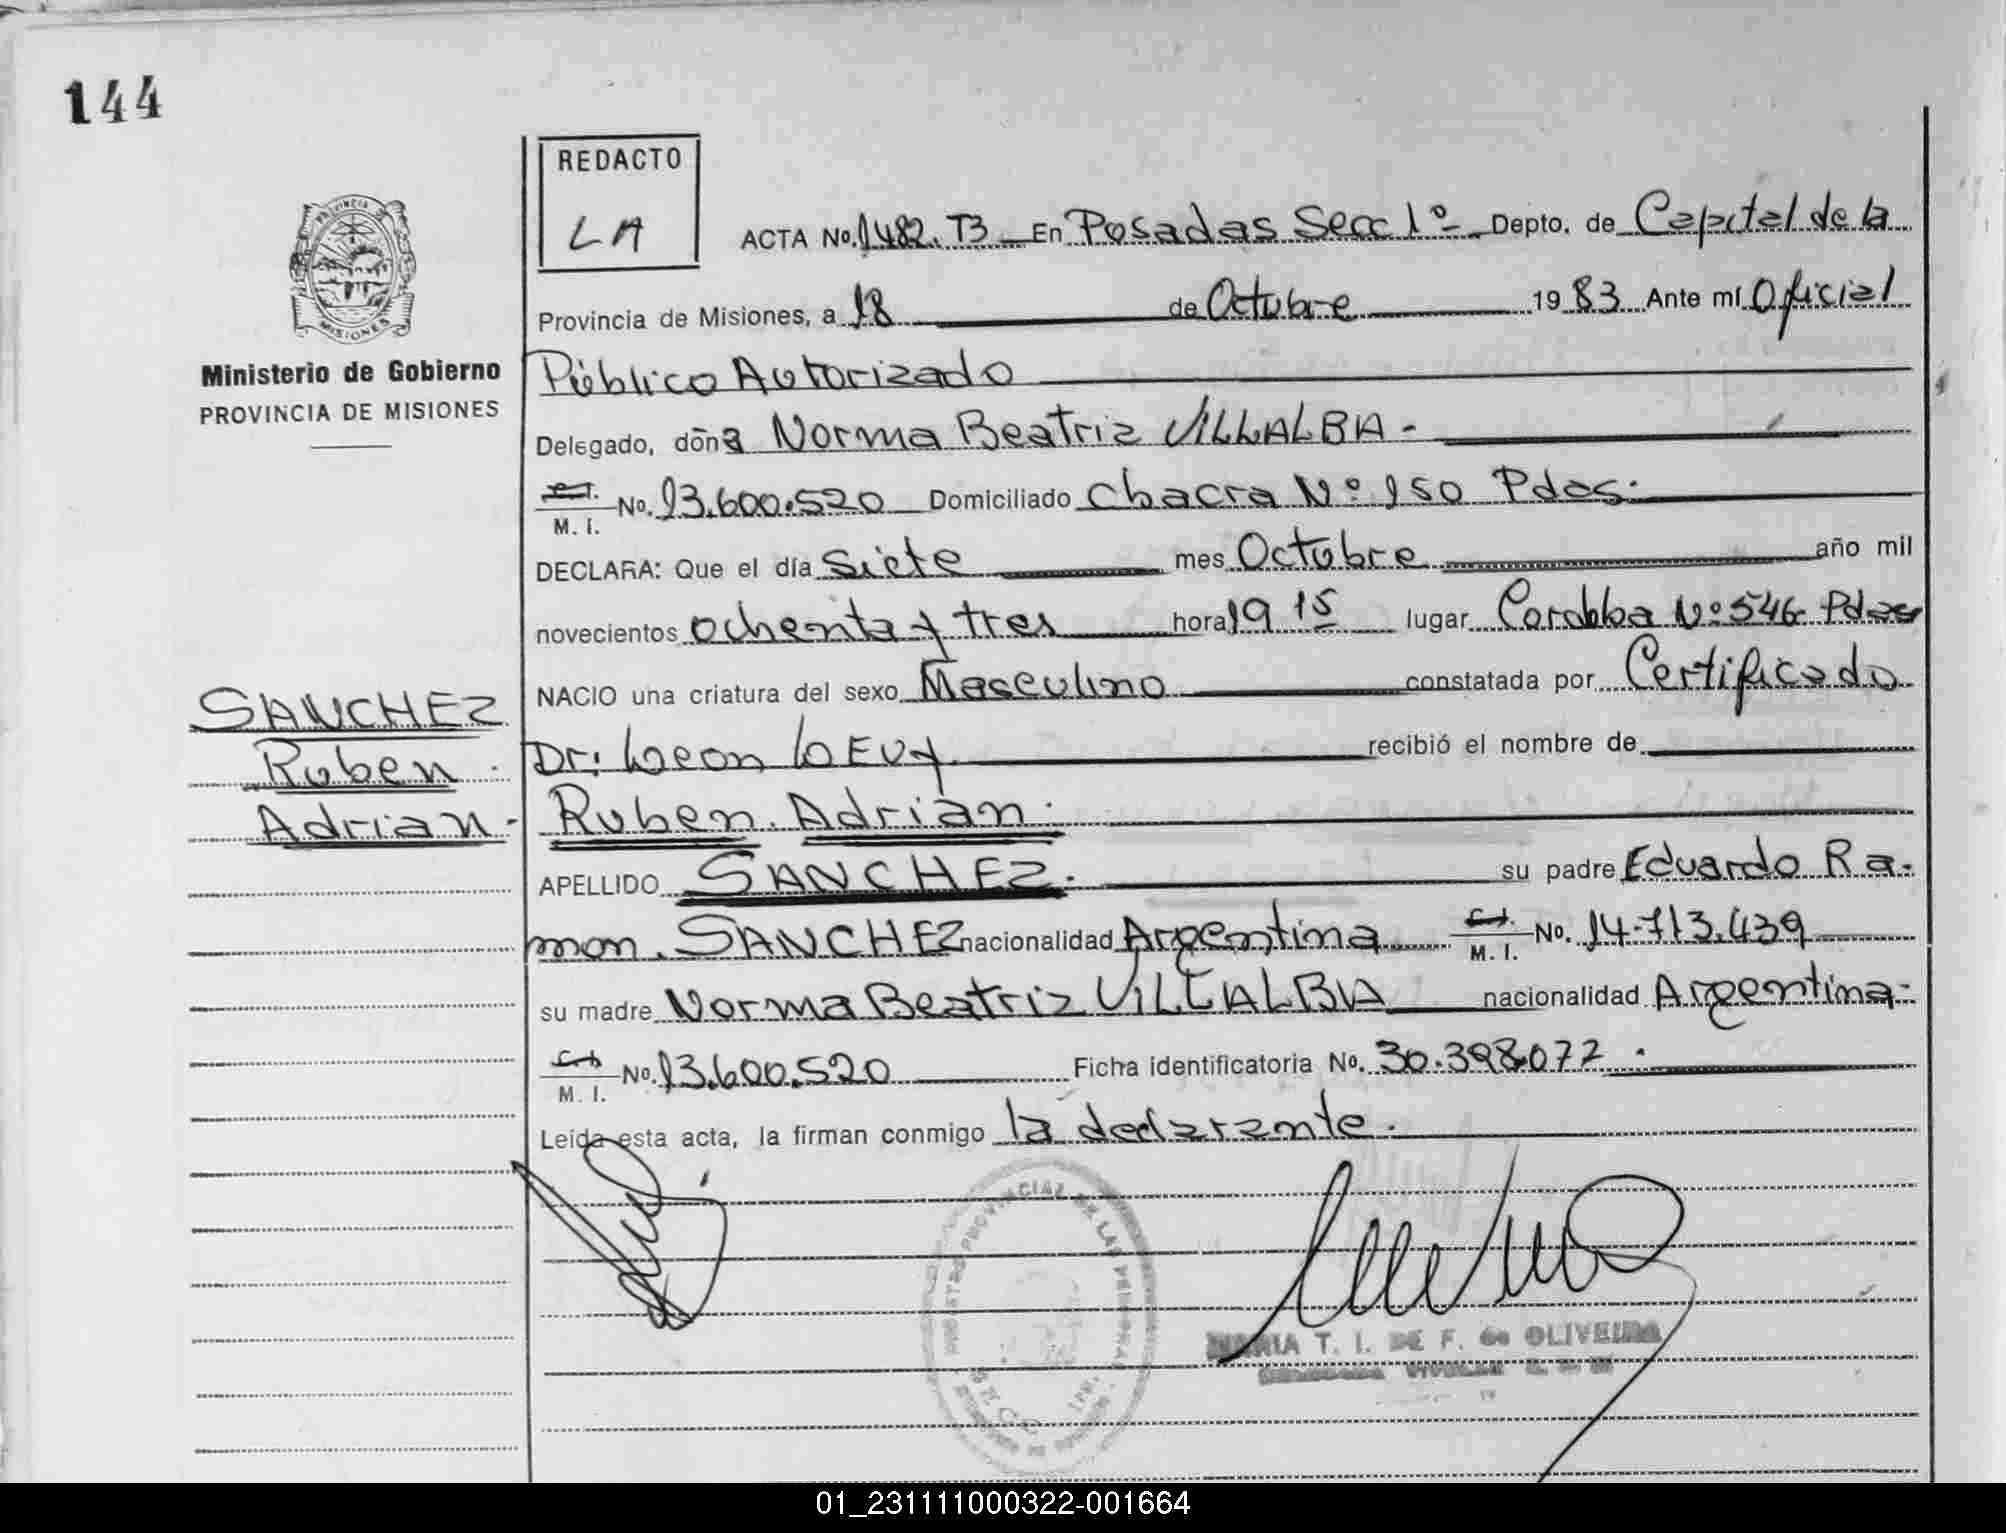 144
REDACTO
LA
PROVINCIA DE
MISIONES
Ministerio de Gobierno
PROVINCIA DE MISIONES
ACTA No. 1482. T3 En Posadas Secc 1º Depto. de Capital de la
Provincia de Misiones, a 18 de Octubre 1983 Ante mí Oficial
Público Autorizado
Delegado, doña Norma Beatriz VILLALBA.
M. I. No. 13.600.520 Domiciliado Chacra Nº 150 Pdas.
DECLARA: Que el día Siete mes Octubre año mil
novecientos ochenta y tres hora 19 15 lugar Cordoba Nº 546 Pdas
NACIO una criatura del sexo Masculino constatada por Certificado
Dr: Leon LEVY recibió el nombre de
Ruben. Adrian.
APELLIDO SANCHEZ. su padre Eduardo Ra-
mon. SANCHEZ nacionalidad Argentina M. I. No. 14.713.439
su madre Norma Beatriz VILLALBA nacionalidad Argentina.
M. I. No. 13.600.520 Ficha identificatoria No. 30.398.077.
Leída esta acta, la firman conmigo la declarante.
SANCHEZ
Ruben.
Adrian.
PROVINCIAL DE LAS PERSONAS
MARIA T. I. DE F. de OLIVEIRA
01_231111000322-001664